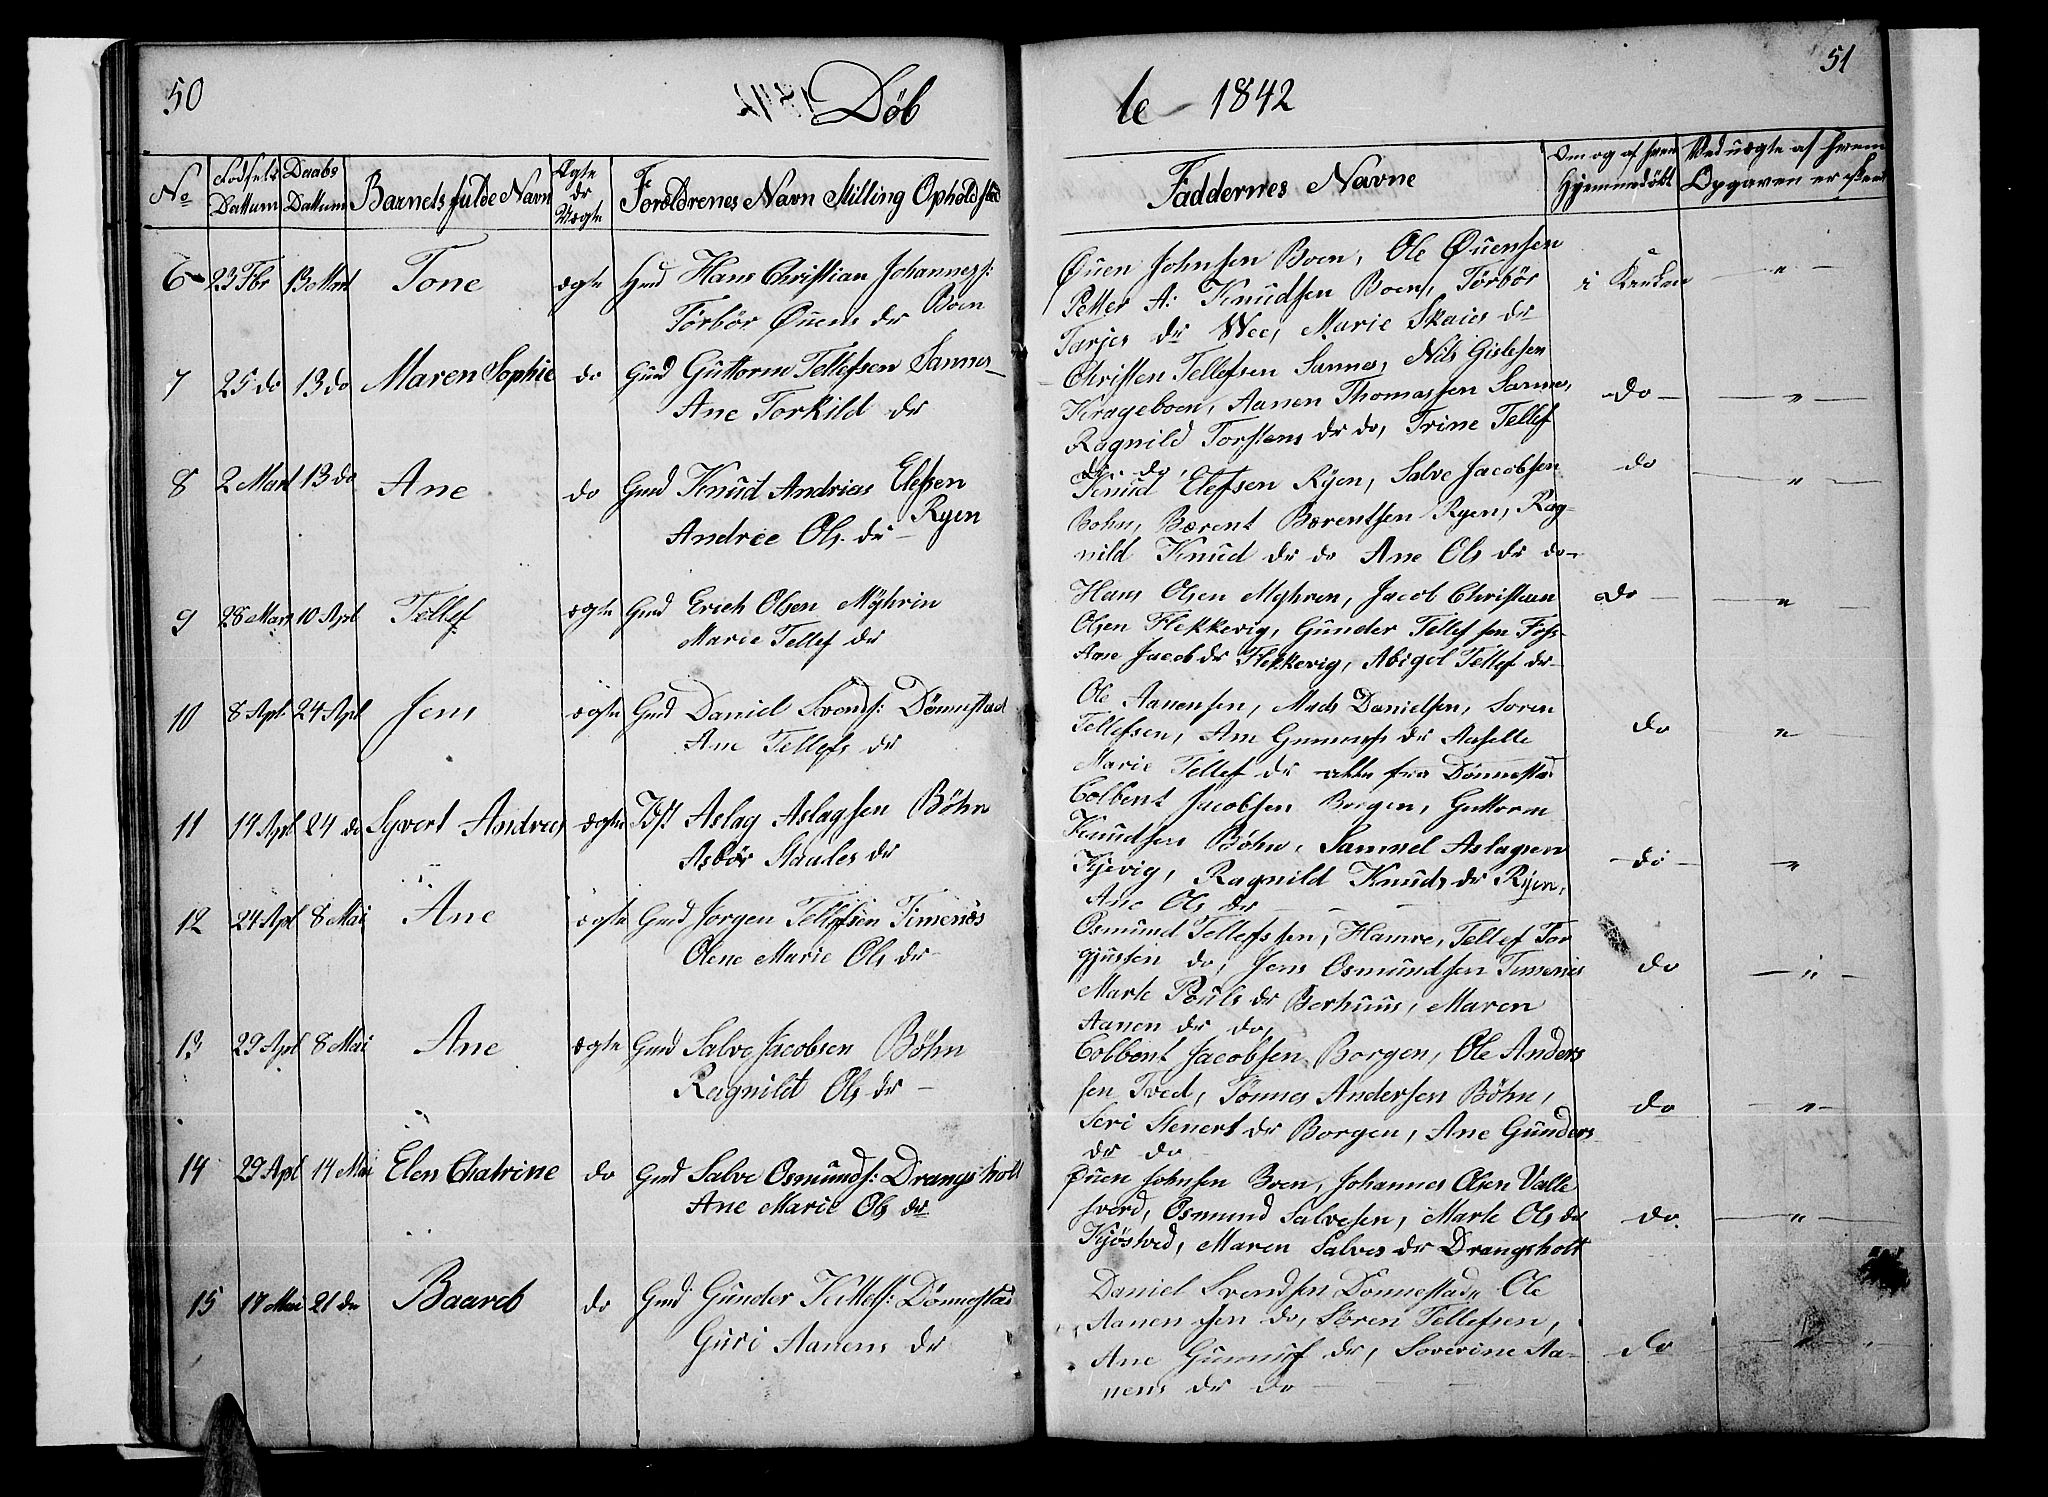 50
Døb
te 1842
51
No
Fødsels Dattum
Daabs Dattum
Barnets fulde Navn
Ægte
dr
Uægte
Forældrenes Navn Stilling Opholdsted
Faddernes Navne
Om og af hvem
Hjemmedøbt
Ved uægte af hvem
Opgaven er skeet
6 23 Fbr 13 Mart Tone ægte Gmd Hans Christian Johanness:
Torbør Øuens dr Boen
Øuen Johnsen Boen, Ole Øuensen
Petter A: Knudsen Boen, Torbør
Tarjes dr Wee, Marie Skaies dr
i Kirken — " —
7 25 do 13 do Maren Sophie do Gmd Guttorm Tellefsen Sannes
Ane Torkild dr
Christen Tellefsen Sannes, Nils Gislesen
Krageboen, Aanen Thomassen Sannes,
Ragnild Torstens dr do, Trine Tellef
dr do,
do — " —
8 2 Mart 13 do Ane do Gmd Knud Andrias Elefsen
Andree Ols. dr Ryen
Knud Elefsen Ryen, Salve Jacobsen
Bohn, Bærent Bærentsen Ryen, Rag-
nild Knud dr do Ane Ols dr do
do — " —
9 28 Mart 10 Apl Tellef ægte Gmd Erich Olsen Myhrin
Marie Tellef dr
Hans Olsen Myhren, Jacob Christian
Olsen Flekkevig, Gunder Tellef sen Foss
Ane Jacob dr Flekkevig, Abigel Tellef dr
do — " —
10 8 Apl 24 Apl Jens ægte Gmd Daniel Svends: Dønnestad
Ane Tellefs dr
Ole Aanensen, Mads Danielsen, Soren
Tellefsen, Ane Gunnufs dr Aaselle
Marie Tellef dr alle fra Dønnestad
do "
11 14 Apl 24 do Syvert Andreas ægte Idst Aslag Aslagsen Böhn
Asbör Staales dr
Colbent Jacobsen Borgen, Guttorm
Knudsen Böhn, Samuel Aslagsen
Kjevig, Ragnild Knuds dr Ryen,
Ane Ols dr
do — "
12 24 Apl 8 Mai Ane ægte Gmd Jorgen Tellefsen Timenes
Olene Marie Ols dr
Osmund Tellefssen, Hamre, Tellef Tor
gjussen do, Jens Osmundsen Timenes
Marte Pouls dr Berhuus, Maren
Aanen dr do,
do — " —
13 29 Apl 8 Mai Ane ægte Gmd Salve Jacobsen Böhn
Ragnild Ols dr
Colbent Jacobsen Borgen, Ole Anders
sen Tved, Tönnes Andersen Böhn,
Seri Stenert dr Borgen, Ane Gunders
dr do
do — " —
14 29 Apl 14 Mai Elen Chatrine do Gmd Salve Osmunds: Drangsholt
Ane Marie Ols dr
Øuen Johnsen Boen, Johannes Olsen Valle
sverd, Osmund Salvesen, Marte Ols dr
Kjöstved, Maren Salves dr Drangsholt
do. — " —
15 17 Mai 21 do Baareb do Gmd Gunder Kittels: Dönnestad
Guri Aanens dr
Daniel Svendsen Donnestad, Ole
Aanensen do, Sören Tellefsen,
Ane Gunnuf dr, Soverine Aa-
nens dr do
do